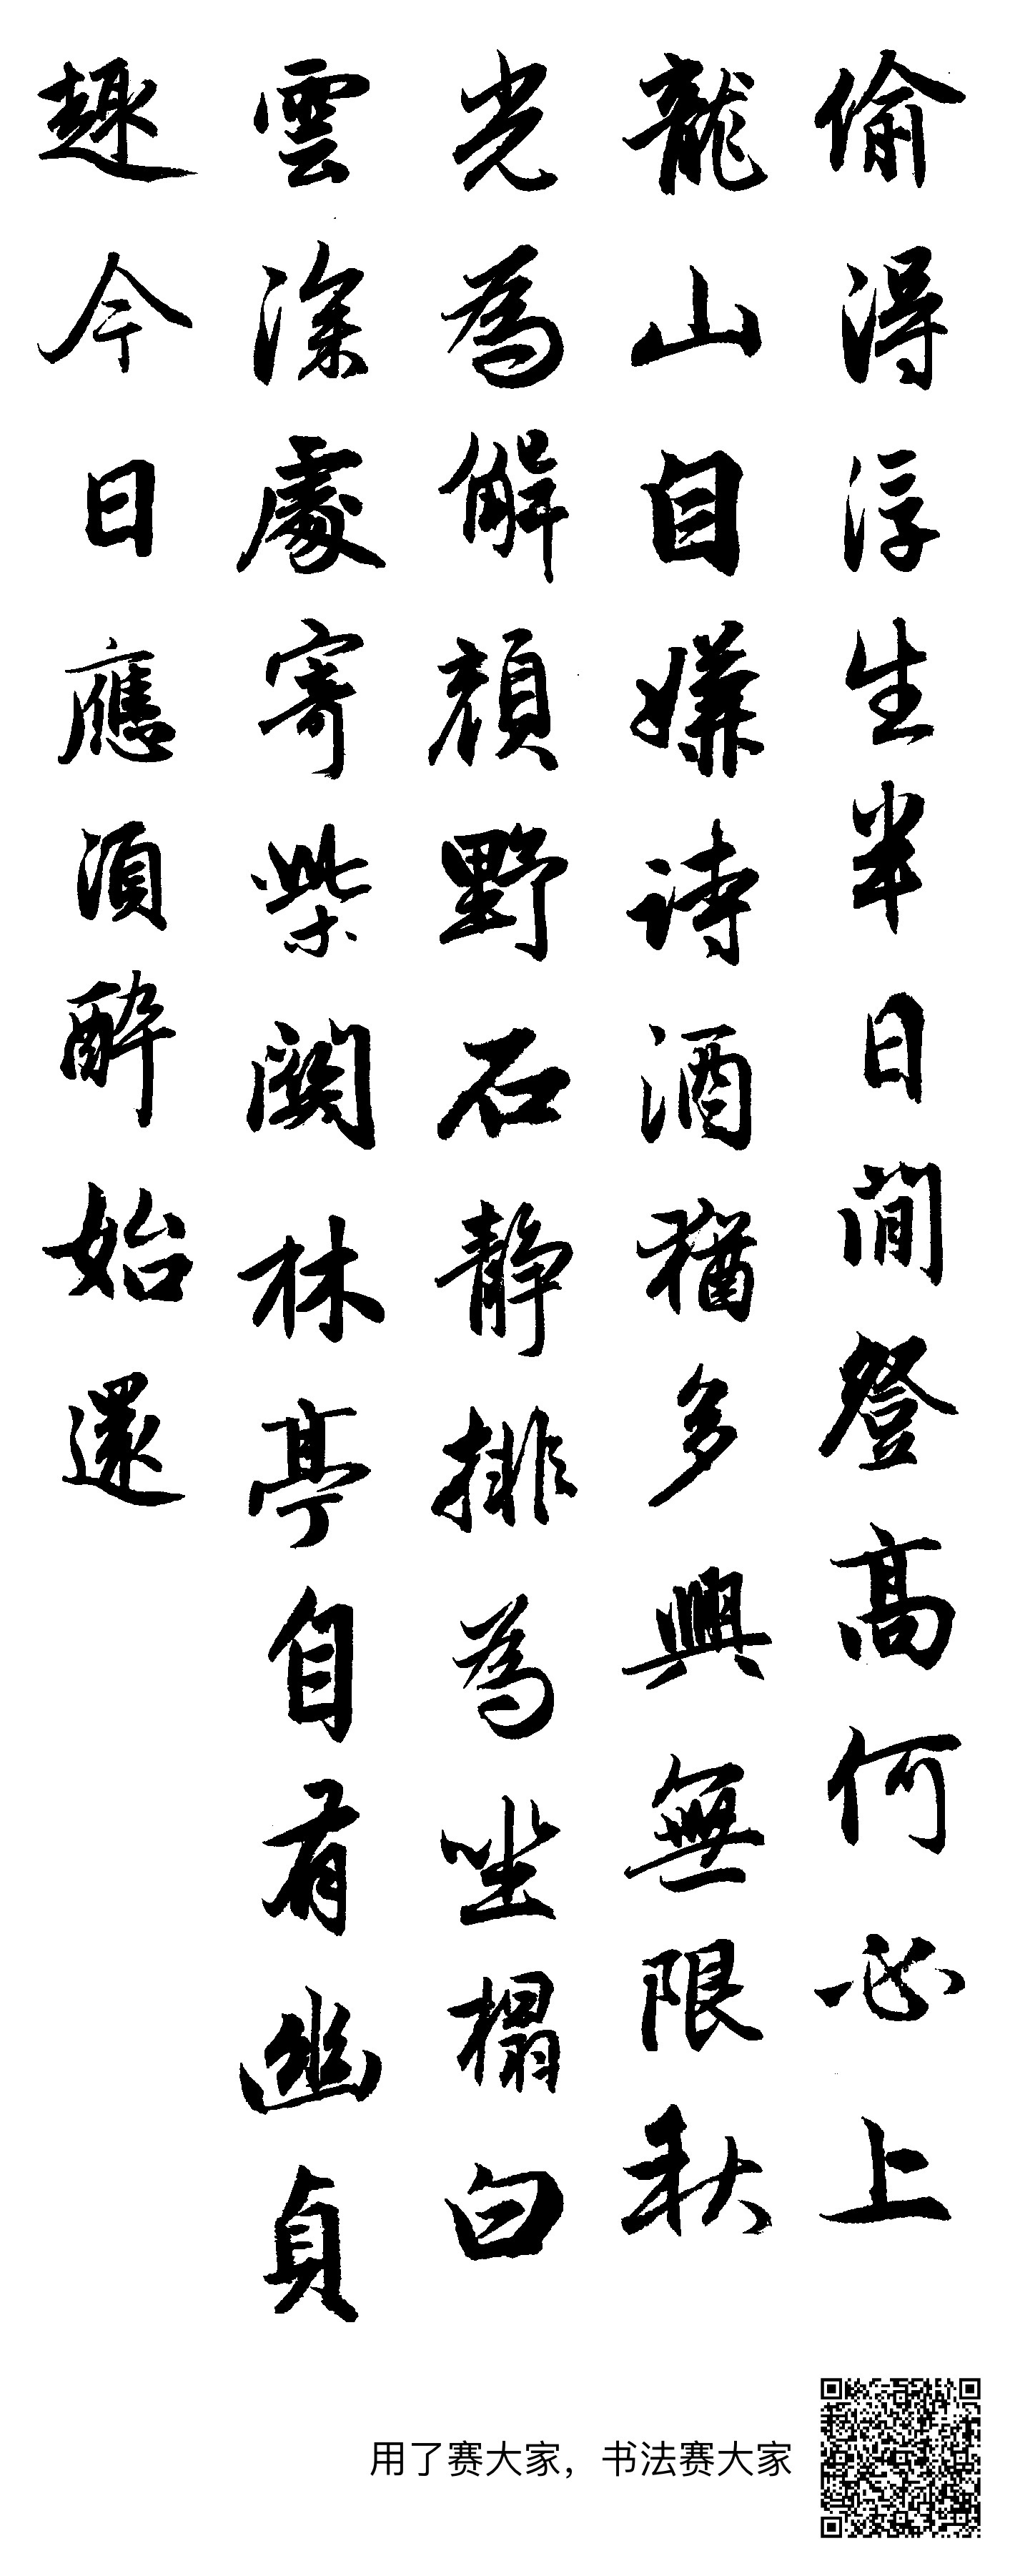 偷得浮生半日間登高何必上
龍山自嫌詩酒猶多興無限秋
光為解顏野石靜排為坐榻白
雲深處寄柴關林亭自有幽貞
趣今日應須醉始還
用了赛大家，书法赛大家